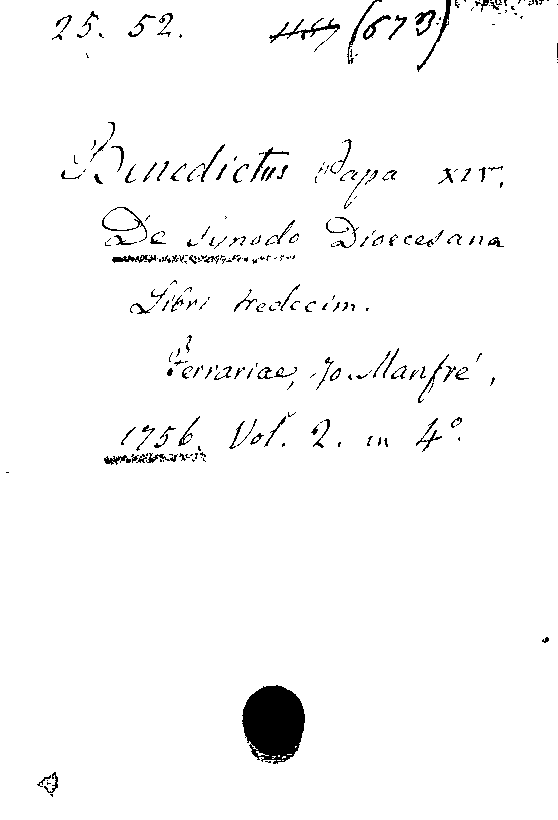 25. 52. (673)
Benedictus Papa XIV.
De Synodo Dioecesana
Libri tredecim.
Ferrariae, Jo. Manfré,
1756. Vol. 2. in 4°.